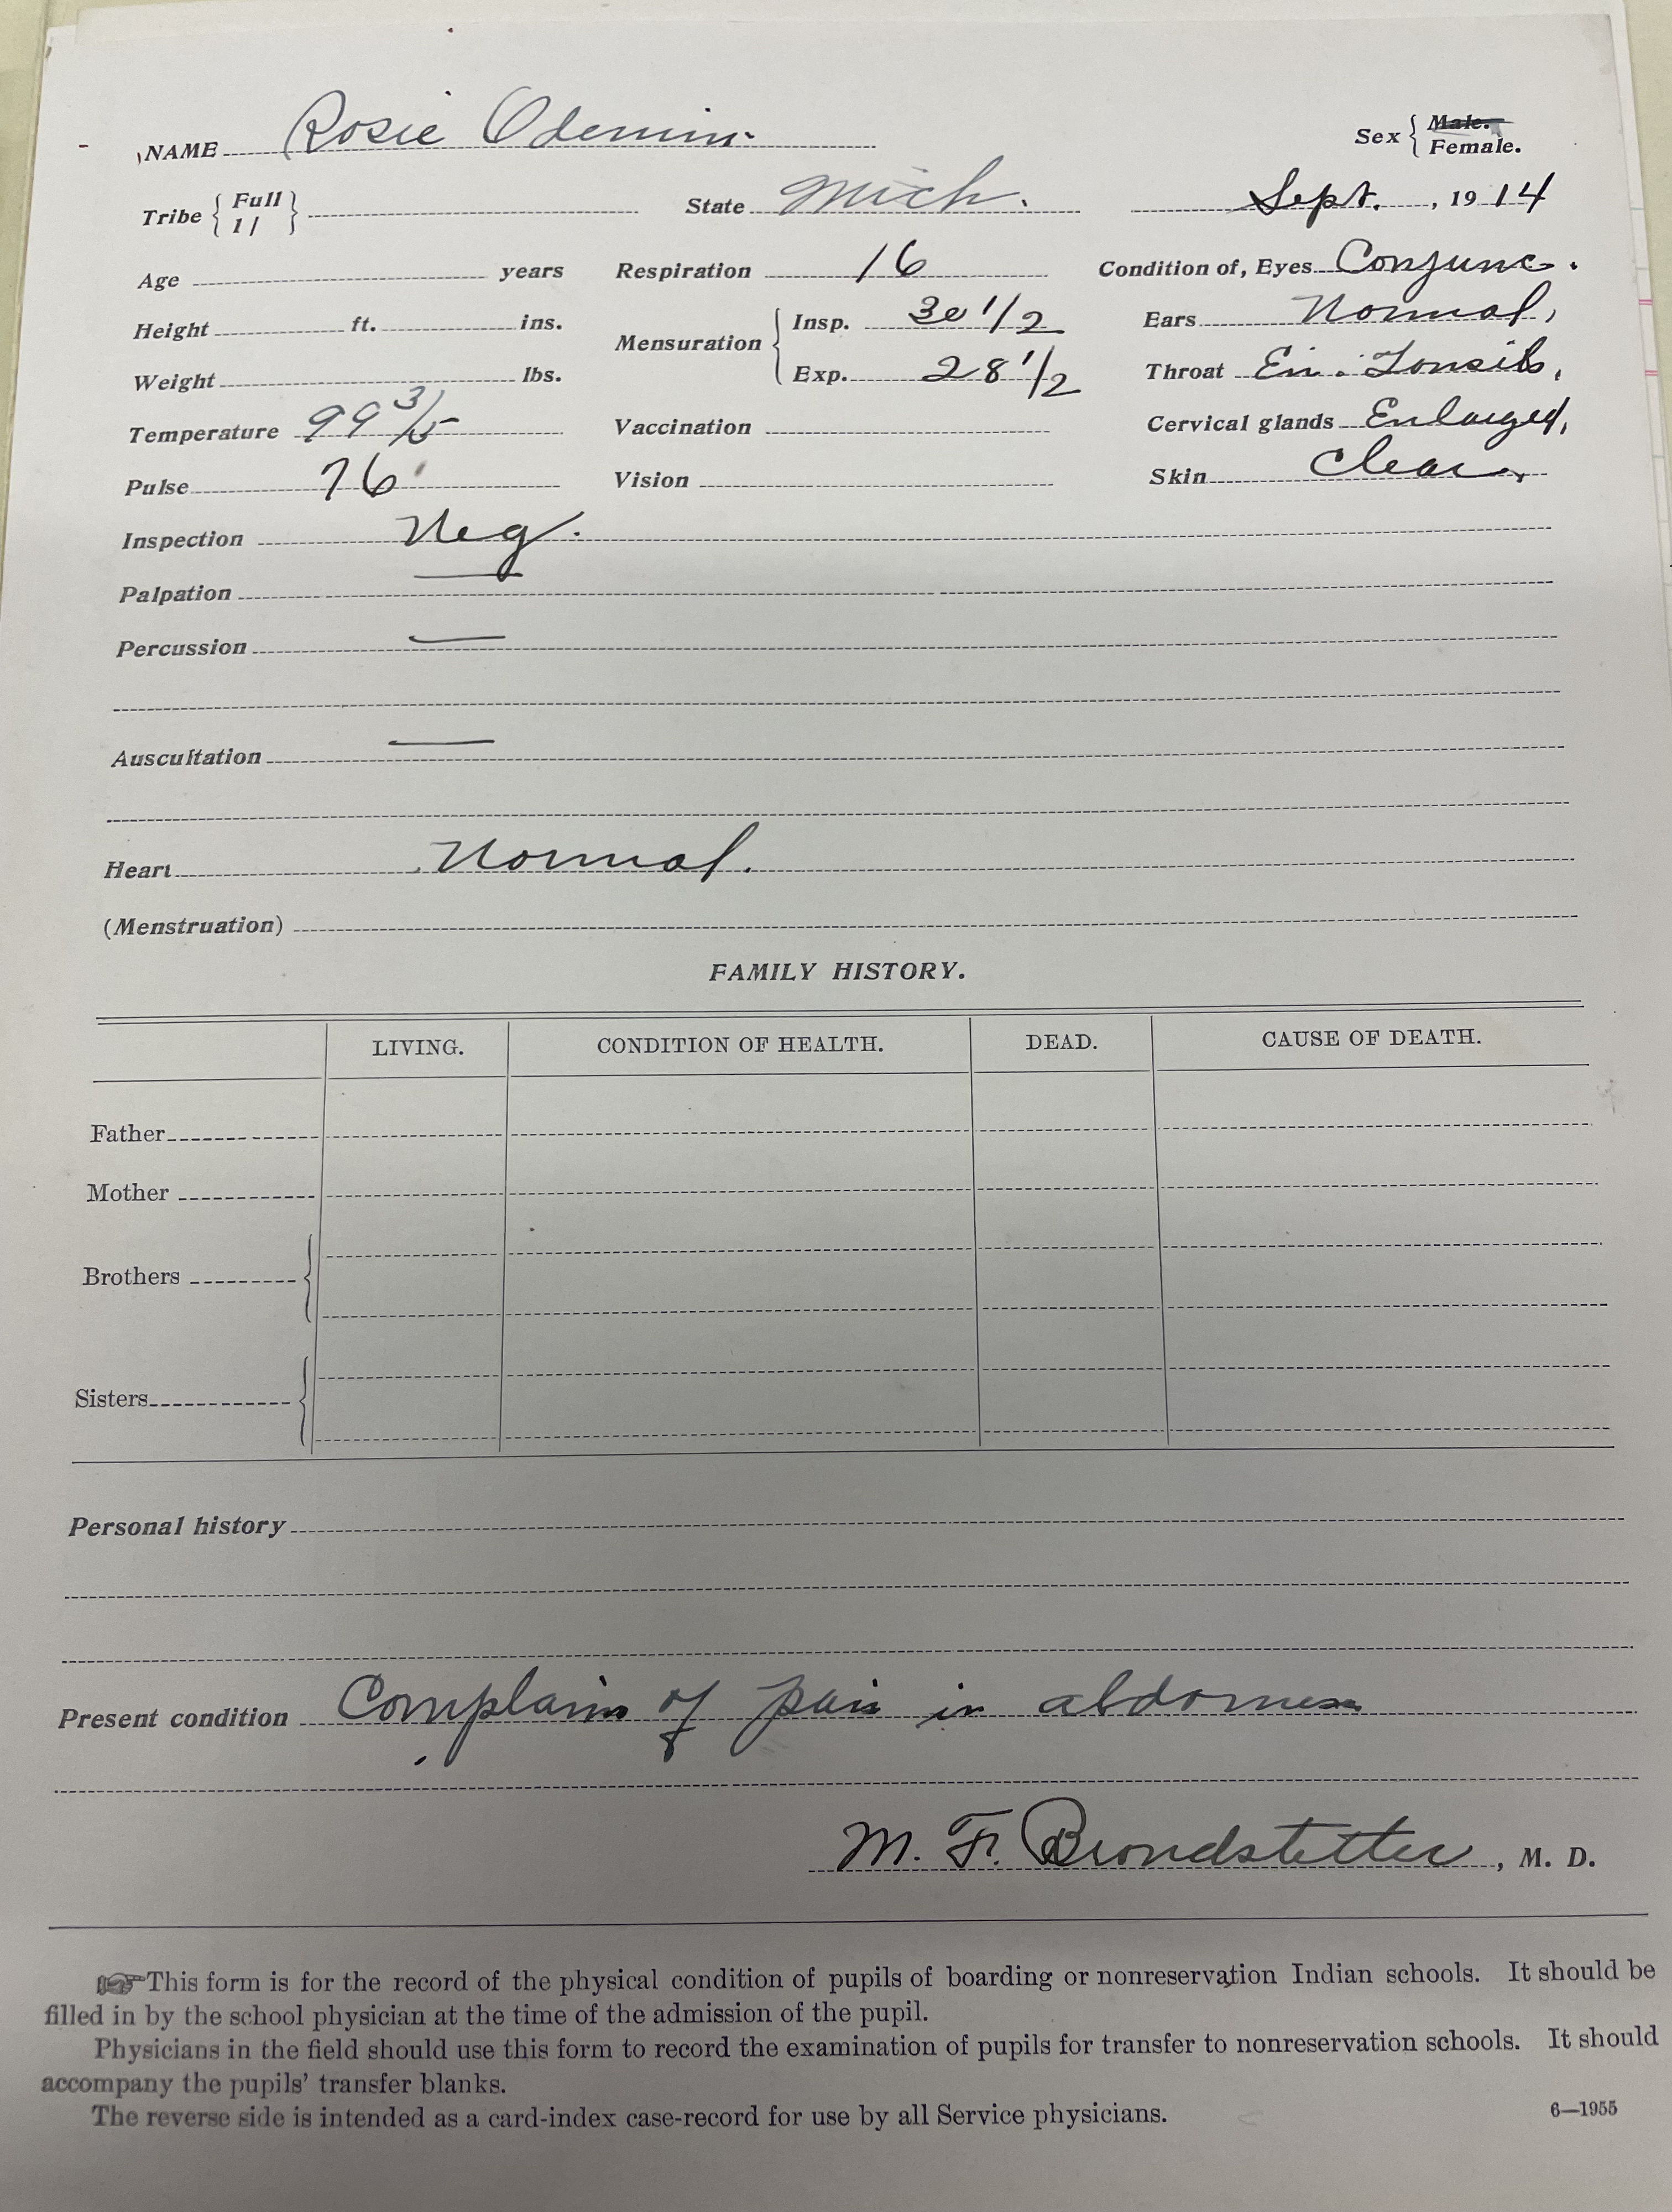 NAME Rosie Odemin. Sex { Male. Female.
Tribe { Full 1/ } State Mich. Sept. , 19 14
Age years Respiration 16 Condition of, Eyes Conjunc.
Height ft. ins. Mensuration { Insp. 30 1/2 Ears Normal,
Weight lbs. Exp. 28 1/2 Throat En. Tonsils,
Temperature 99 3/5 Vaccination Cervical glands Enlarged,
Pulse 76 Vision Skin Clear,
Inspection Neg.
Palpation —
Percussion —
Auscultation —
Heart Normal.
(Menstruation)
FAMILY HISTORY.
LIVING. CONDITION OF HEALTH. DEAD. CAUSE OF DEATH.
Father
Mother
Brothers
Sisters
Personal history
Present condition Complains of pain in abdomen
M. F. Brondstetter, M. D.
☞This form is for the record of the physical condition of pupils of boarding or nonreservation Indian schools. It should be
filled in by the school physician at the time of the admission of the pupil.
Physicians in the field should use this form to record the examination of pupils for transfer to nonreservation schools. It should
accompany the pupils' transfer blanks.
The reverse side is intended as a card-index case-record for use by all Service physicians. 6—1955